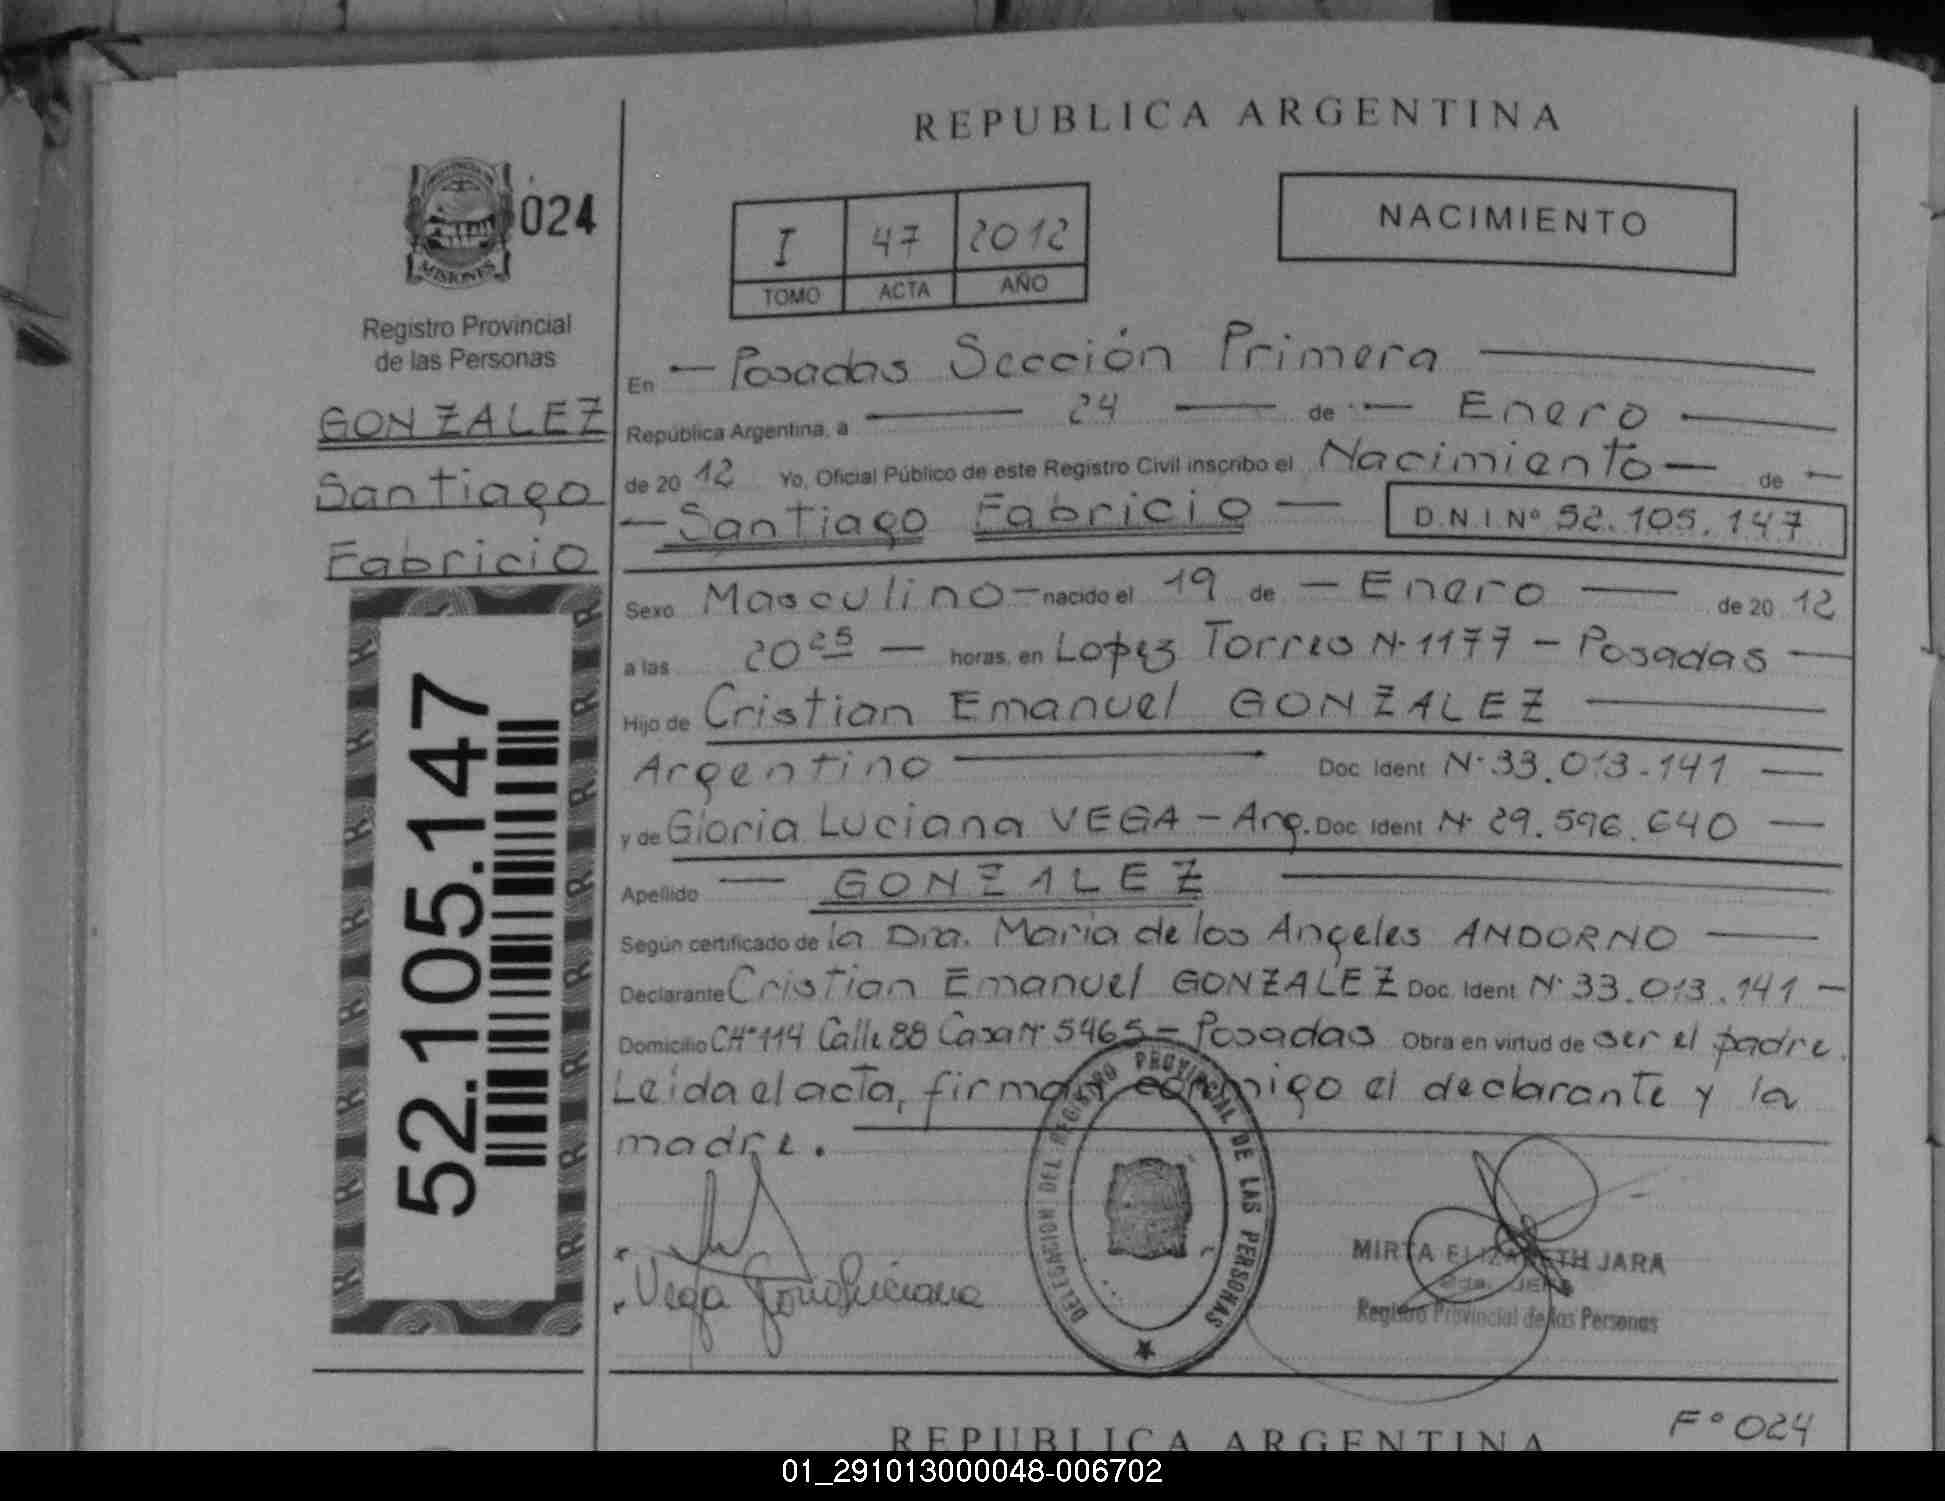 REPUBLICA ARGENTINA
PROVINCIA
MISIONES
024
Registro Provincial
de las Personas
GONZALEZ
Santiago
Fabricio
52.105.147
I 47 2012
TOMO ACTA AÑO
NACIMIENTO
En — Posadas Sección Primera —
República Argentina, a — 24 — de — Enero —
de 20 12 Yo, Oficial Público de este Registro Civil inscribo el Nacimiento — de —
— Santiago Fabricio — D.N.I Nº 52.105.147
Sexo Masculino — nacido el 19 de — Enero — de 20 12
a las 20 25 — horas, en Lopez Torres Nº 1177 - Posadas —
Hijo de Cristian Emanuel GONZALEZ —
Argentino — Doc. Ident Nº 33.013.141 —
y de Gloria Luciana VEGA - Arg. Doc. Ident Nº 29.596.640 —
Apellido — GONZALEZ —
Según certificado de la Dra. Maria de los Angeles ANDORNO —
Declarante Cristian Emanuel GONZALEZ Doc. Ident Nº 33.013.141 —
Domicilio CHº 114 Calle 88 Casa Nº 5465 - Posadas Obra en virtud de ser el padre.
Leída el acta, firman conmigo el declarante y la
madre. —
Vega Gloria Luciana
DELEGACION DEL REGISTRO PROVINCIAL DE LAS PERSONAS
MIRTA ELIZABETH JARA
Registro Provincial de las Personas
Fº 024
REPUBLICA ARGENTINA
01_291013000048-006702